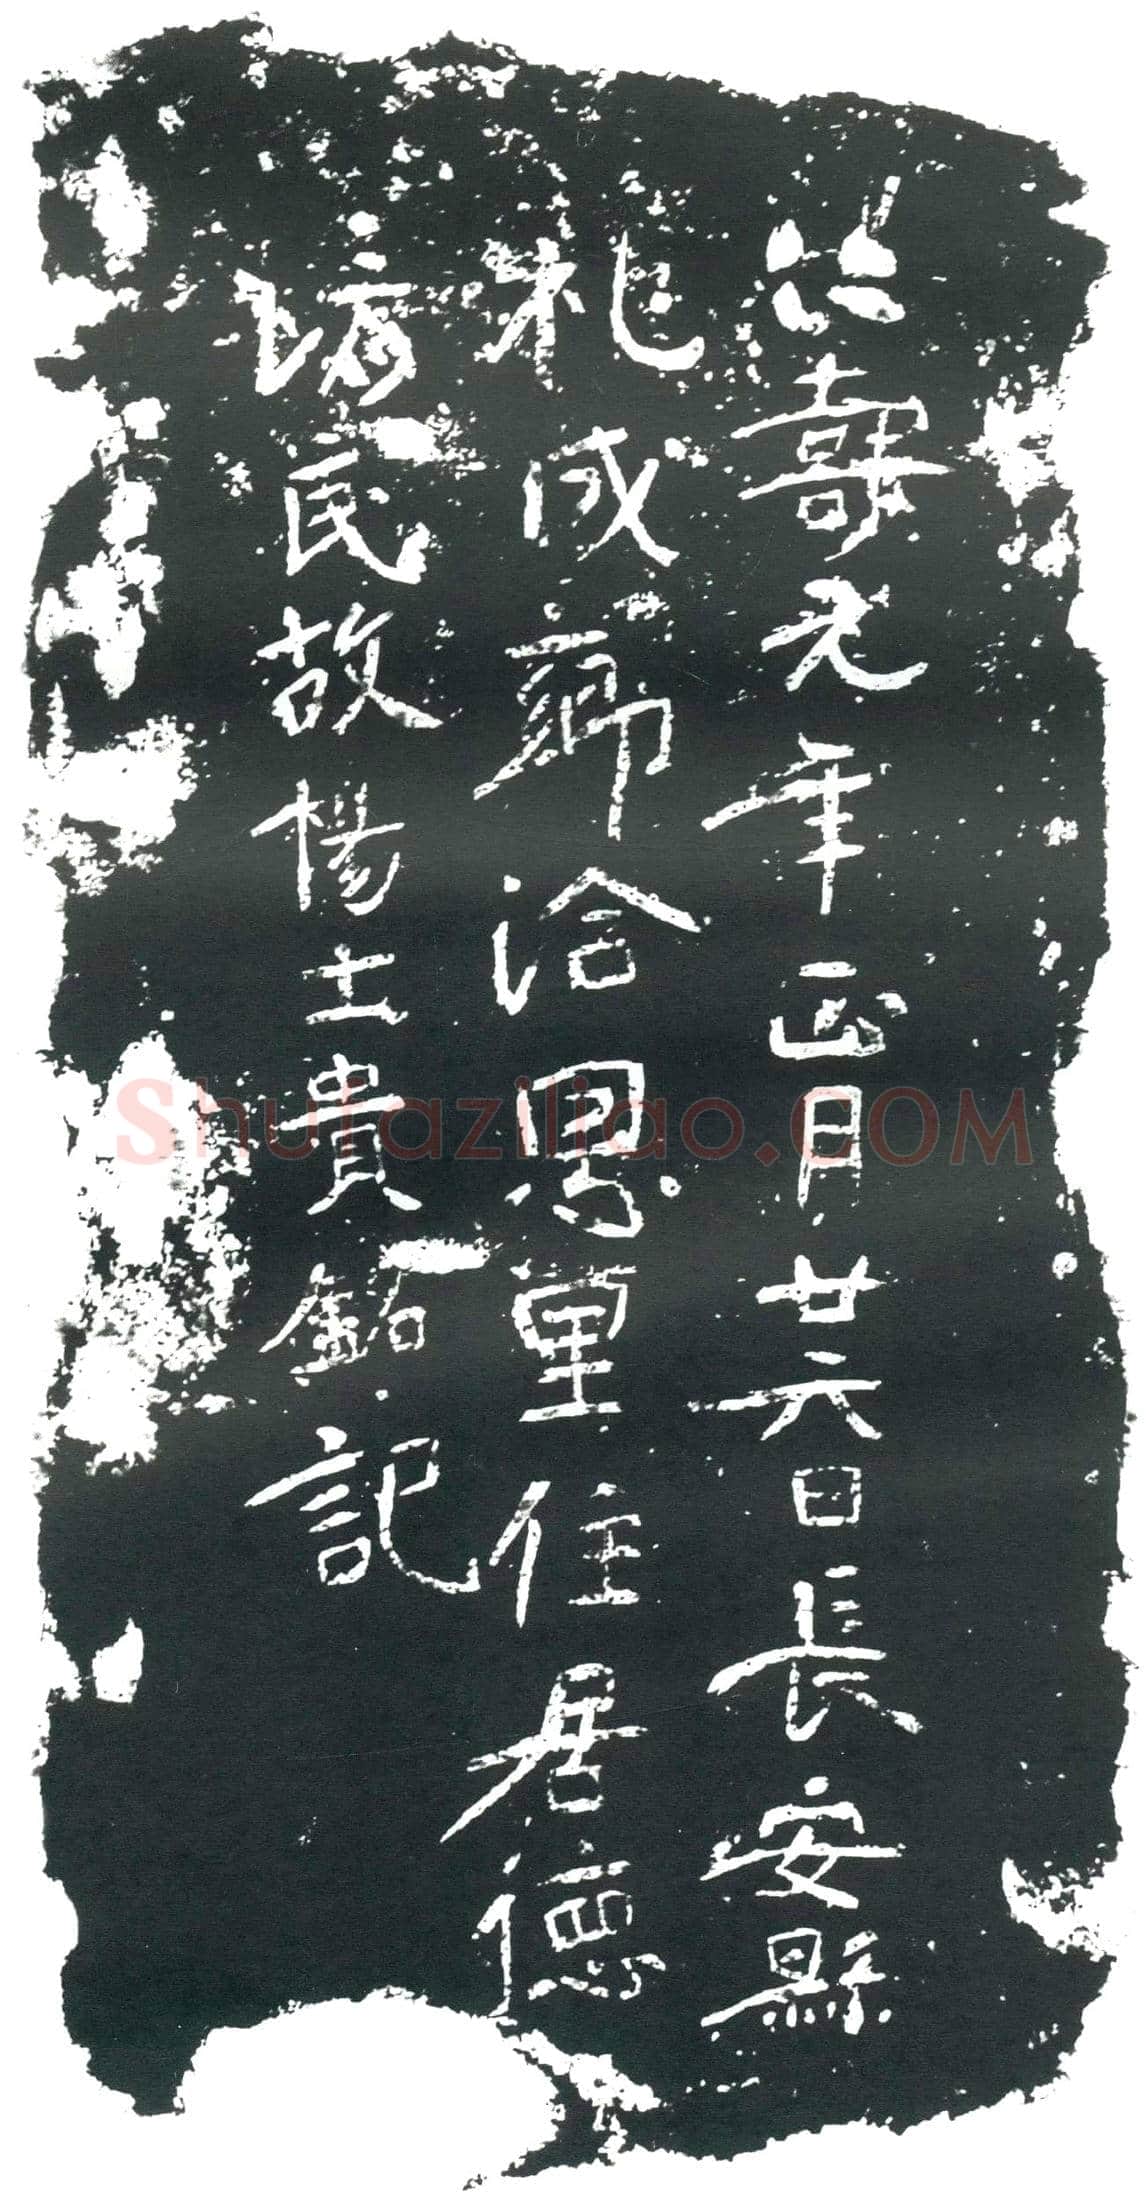 仁壽元年正月廿六日長安縣
礼成鄉洽恩里住居德
坊民故楊士貴銘記
Shufaziliao.COM